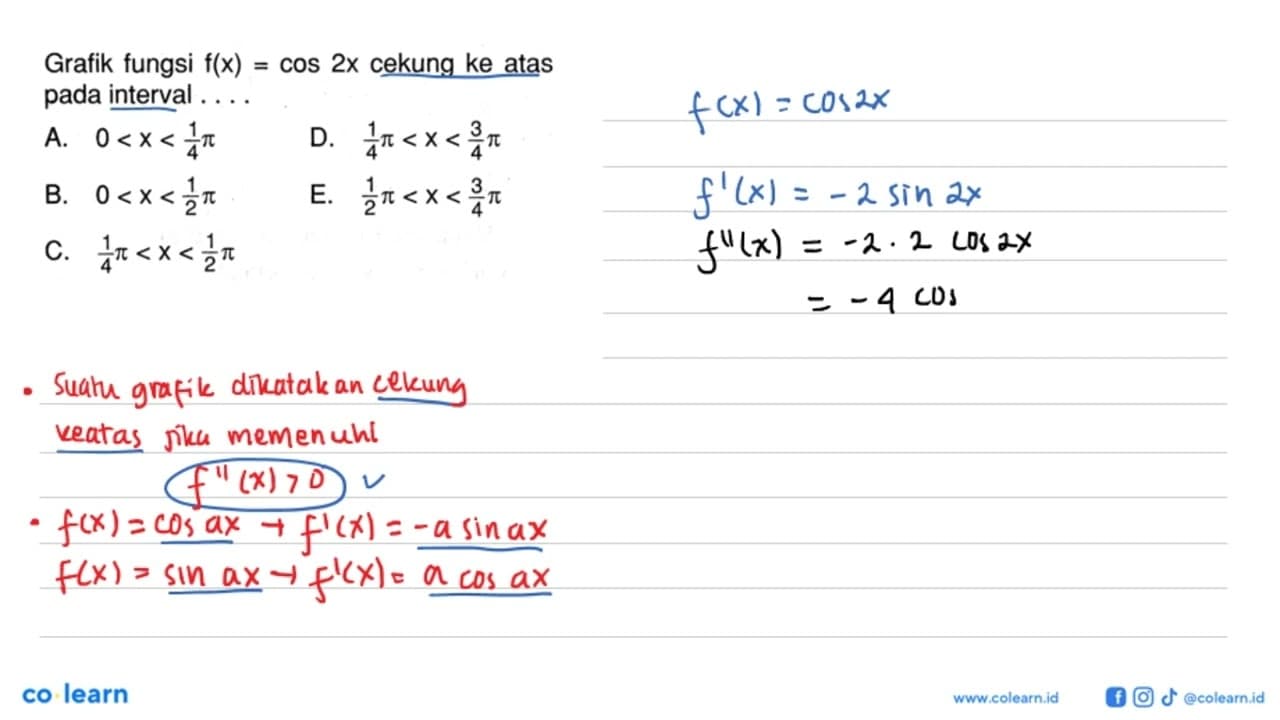 Grafik fungsi f(x) = cos 2x cekung ke atas
pada interval . . . .
A. 0 < x < 1/4 π
D. 1/4 π < x < 3/4 π
B. 0 < x < 1/2 π
E. 1/2 π < x < 3/4 π
C. 1/4 π < x < 1/2 π
f(x) = cos 2x
f'(x) = -2 sin 2x
f''(x) = -2 · 2 cos 2x
= -4 cos
• Suatu grafik dikatakan cekung
keatas jika memenuhi
f''(x) > 0 ✓
• f(x) = cos ax → f'(x) = -a sin ax
f(x) = sin ax → f'(x) = a cos ax
co·learn
www.colearn.id
@colearn.id